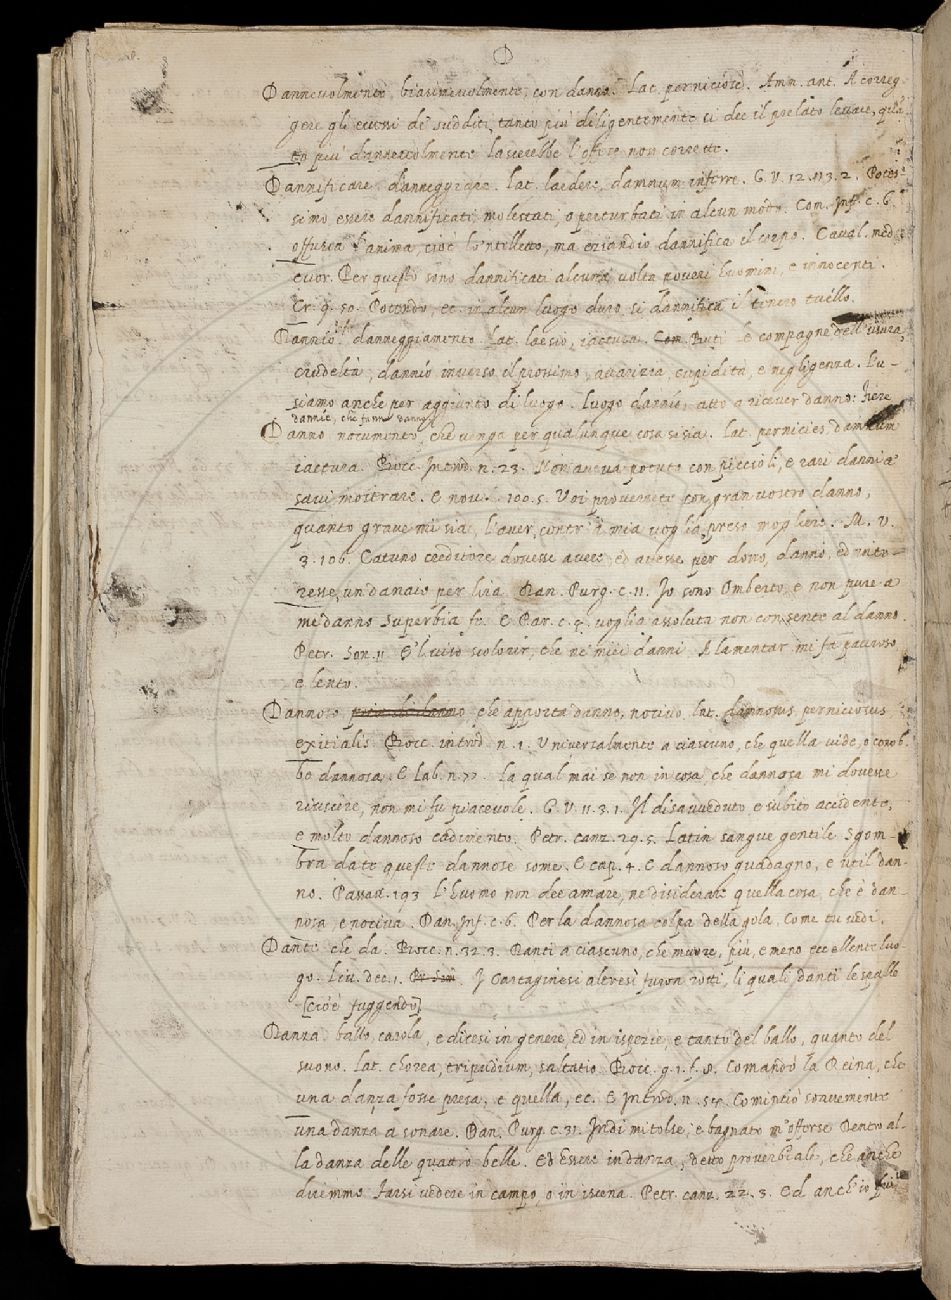 D
Dannevolmente, biasimevolmente, con danno. Lat. perniciose. Amm. ant. A correg-
gere gli eccessi de' sudditi, tanto più diligentemente si dee il prelato levare, quan
to più dannevolmente lascerebbe l'offese non corrette.
Dannificare, danneggiare. Lat. laedere, damnum inferre. G. V. 12. 113. 2. Potes
simo essere dannificati, molestati, o perturbati in alcun modo. Com. Inf. c. 6.
offusca l'anima, cioè lo'ntelletto, ma eziandio dannifica il corpo. Caval. med.
cuor. Per questo sono dannificati alcuna volta poveri huomini, e innocenti.
Cr. 9. 50. Potendo, ec. in alcun luogo duro, si dannifica il tenero tuello.
Dannío danneggiamento. Lat. laesio, iactura. le compagne dell'usura,
crudeltà, dannío inverso il prossimo, avarizia, cupidità, e negligenza. Lu-
siamo anche per aggiunto di luogo. luogo dannío, atto a ricever danno. fiere
dannie, che fanno danno
Danno nocumento, che venga per qualunque cosa si sia. Lat. pernicies, damnum
iactura. Bocc. Introd. n. 23. Non aveva potuto con piccioli, e rari danni a'
savi mostrare. E nov. 100. 5. Voi proverrete con gran vostro danno,
quanto grave mi sia, l'aver contr'a mia voglia preso mogliere. M. V.
3. 106. Catuno creditore dovesse avere, ed avesse per dono, danno, ed inte-
resse, un danaio per lira. Dan. Purg. c. 11. Io sono Omberto, e non pure a
me danno Superbia fe. E Par. c. 4. voglia assoluta non consente al danno.
Petr. Son. 11 E'l viso scolorir, che ne' miei danni A lamentar mi fa pauroso
e lento.
Dannoso che apporta danno, nocivo. Lat. damnosus, perniciosus,
exitialis. Bocc. introd. n. 1. Universalmente a ciascuno, che quella vide, o conob-
be dannosa. E lab. n. 77. la qual mai se non in cosa, che dannosa mi dovesse
riuscire, non mi fu piacevole. G. V. 11. 3. 1. Il disavveduto e subito accidente,
e molto dannoso cadimento. Petr. canz. 29. 5. Latin sangue gentile Sgom-
bra da te queste dannose some. E cap. 4. E dannoso guadagno, e util dan-
no. Passav. 193 L'huomo non dee amare, nè disiderare quella cosa, che è dan-
nosa, e nociva. Dan. Inf. c. 6. Per la dannosa colpa della gola, Come tu vedi.
Dante che da. Bocc. n. 32. 3. Danti a ciascuno, che muore, più, e meno eccellente luo-
go. Liv. dec. 1. I Cartaginesi altresì furon rotti, li quali danti le spalle
[cioè fuggendo]
Danza ballo, carola, e dicesi in genere, ed in ispezie, e tanto del ballo, quanto del
suono. Lat. chorea, tripudium, saltatio. Bocc. g. 1. f. 8. Comandò la Reina, che
una danza fosse presa, e quella, ec. E Introd. n. 54. Cominciò soavemente
una danza a sonare. Dan. Purg. c. 31. Indi mi tolse, e bagnato m'offerse Dentro al-
la danza delle quattro belle. Ed Essere in danza, detto proverbiale, che anche
diremmo Farsi vedere in campo, o in iscena. Petr. canz. 22. 3. Ed anch'io fui